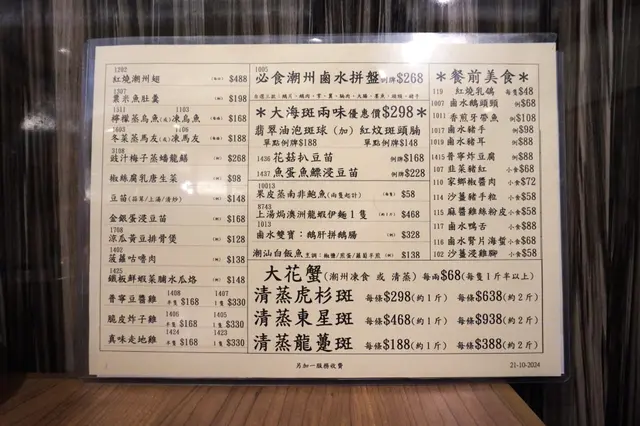 1202
紅燒潮州翅 $488
1307
粟米魚肚羹 $198
1511 1103
檸檬蒸烏魚(或)凍烏魚 $188
1605 1106
冬菜蒸馬友(或)凍馬友 $188
3108
豉汁梅子蒸蟠龍鱔 $268
椒絲腐乳唐生菜 $98
豆苗(蒜茸/上湯/清炒) $148
金銀蛋浸豆苗 $168
1708
涼瓜黃豆排骨煲 $128
1402
菠蘿咕嚕肉 $138
1425
鐵板鮮蝦菜脯水瓜烙 $148
普寧豆醬雞 1408 半隻$168 1407 1隻$330
脆皮炸子雞 1406 半隻$168 1405 1隻$330
真味走地雞 1424 半隻$168 1423 1隻$330
1005
必食潮州鹵水拼盤 例牌$268
*大海斑兩味優惠價$298*
翡翠油泡斑球(加)紅炆斑頭腩
單點例牌$188 單點例牌$148
1436 花菇扒豆苗 例牌$168
1437 魚蛋魚鰾浸豆苗 例牌$228
10013
果皮蒸南非鮑魚(兩隻起計) $58
8743
上湯焗澳洲龍蝦伊麵1隻 $468
1013
鹵水雙寶:鵝肝拼鵝腸 $328
潮汕白飯魚 烹調:椒鹽/煎蛋/蘿蔔羊煎 $138
*餐前美食*
119 紅燒乳鴿 每隻$48
1007 鹵水鵝頭頸 例$68
1011 香煎牙帶魚 例$108
1017 鹵水豬手 例$98
1019 鹵水豬耳 例$98
1415 普寧炸豆腐 例$88
107 韭菜豬紅 小食$68
110 家鄉椒醬肉 小食$72
114 沙薑豬手粒 小食$58
115 麻醬雞絲粉皮 小食$58
117 鹵水鴨舌 小食$88
116 鹵水腎片海蜇 小食$68
102 沙薑浸雞腳 小食$58
大花蟹(潮州凍食 或 清蒸) 每兩$68(每隻1斤半以上)
清蒸虎杉斑 每條$298(約1斤) 每條$638(約2斤)
清蒸東星斑 每條$468(約1斤) 每條$938(約2斤)
清蒸龍躉斑 每條$188(約1斤) 每條$388(約2斤)
另加一服務收費
21-10-2024